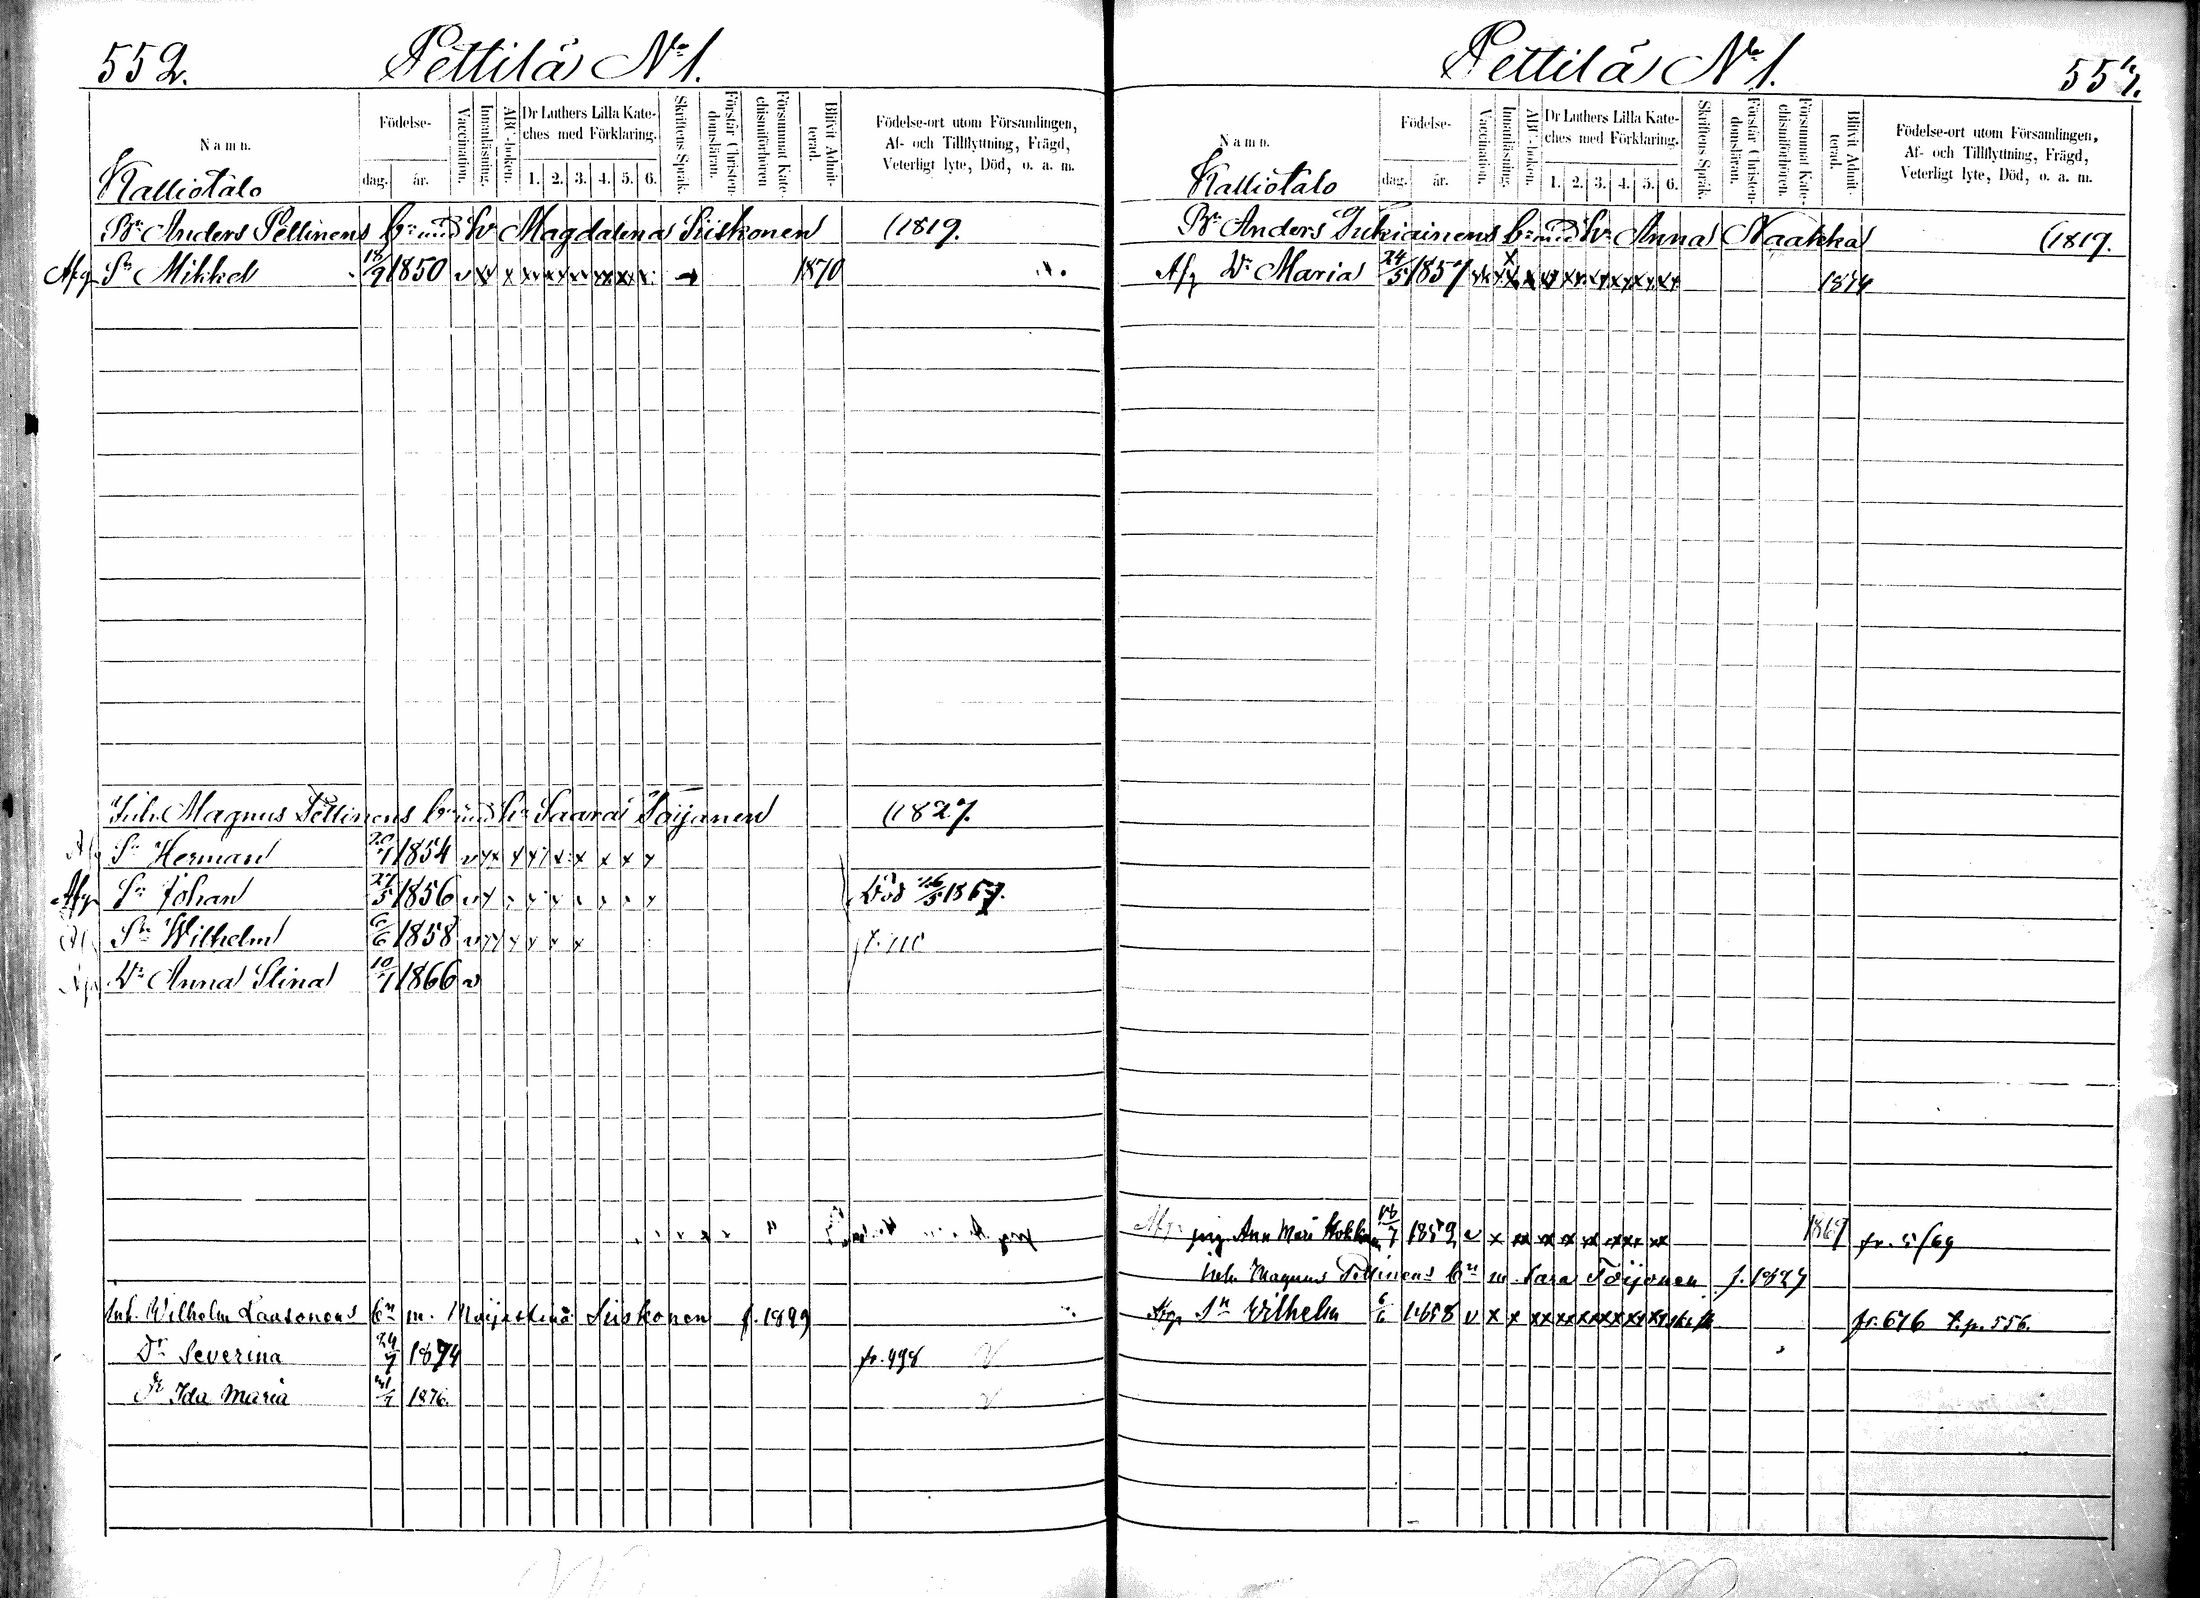 552.
Pettilä No 1.
Namn.
Födelse-
dag.
år.
Vaccination.
Innanläsning.
ABC-boken.
Dr Luthers Lilla Kate-
ches med Förklaring.
1. 2. 3. 4. 5. 6.
Skriftens Språk.
Förstår Christen-
domsläran.
Försummat Kate-
chismiförhören
Blifvit Admit-
terad.
Födelse-ort utom Församlingen,
Af- och Tillflyttning, Frägd,
Veterligt lyte, Död, o. a. m.
Kalliotalo
Bn Anders Pellinens bn med h. Magdalena Siiskonen (1819.
Afg Sn Mikkel 18/9 1850 v x x x x x x x x 1870
Inh. Magnus Pellinens bn med h. Saara Töijonen (1827.
Sn Herman 20/1 1854 v x x x x x x x x x
Afg Sn Johan 24/5 1856 v x Död 16/5 1867.
Sn Wilhelm 6/6 1858 v x x x x x x
Dr Anna Stina 10/1 1866 v
Inh. Wilhelm Laasonens bn m. Maija Stina Siiskonen f. 1899
Dr Severina 24/7 1874 fr. 498 v
Dr Ida Maria 1876. v
Pettilä No 1.
557.
Namn.
Födelse-
dag.
år.
Vaccination.
Innanläsning.
ABC-boken.
Dr Luthers Lilla Kate-
ches med Förklaring.
1. 2. 3. 4. 5. 6.
Skriftens Språk.
Förstår Christen-
domsläran.
Försummat Kate-
chismiförhören.
Blifvit Admit-
terad.
Födelse-ort utom Församlingen,
Af- och Tillflyttning, Frägd,
Veterligt lyte, Död, o. a. m.
Kalliotalo
Bn Anders Inkiäinens bn med h. Anna Naakka (1819.
Afg Dr Maria 24/5 1857 1874
Afg pig. Ann Mari 16/7 1852 v x xx xx xx xx xx xx 1869 fr. 5/69
Inh. Magnus Pellinens bn m. Sara Töijonen f. 1827
Afg Sn Wilhelm 6/6 1858 v x x xx xx xx xx xx xx fr. 676 t. p. 556.